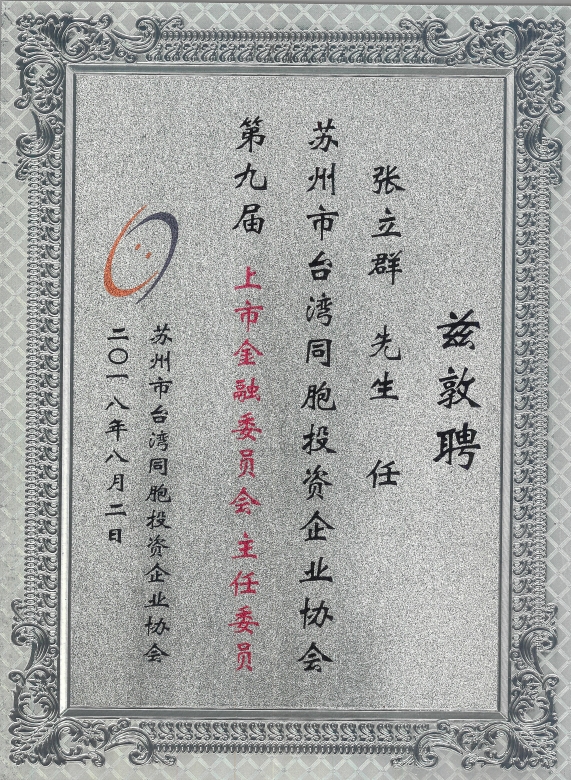 兹敦聘
张立群 先生 任
苏州市台湾同胞投资企业协会
第九届 上市金融委员会 主任委员
苏州市台湾同胞投资企业协会
二〇一八年八月二日